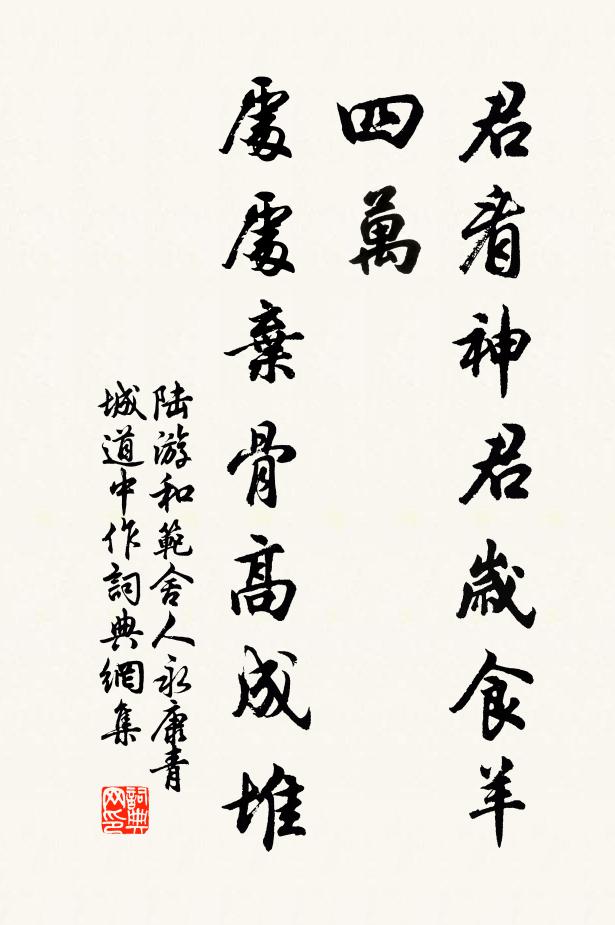 君看神君歲食羊
四萬
處處棄骨高成堆
陆游和範舍人永康青
城道中作詞典網集
詞典
网印